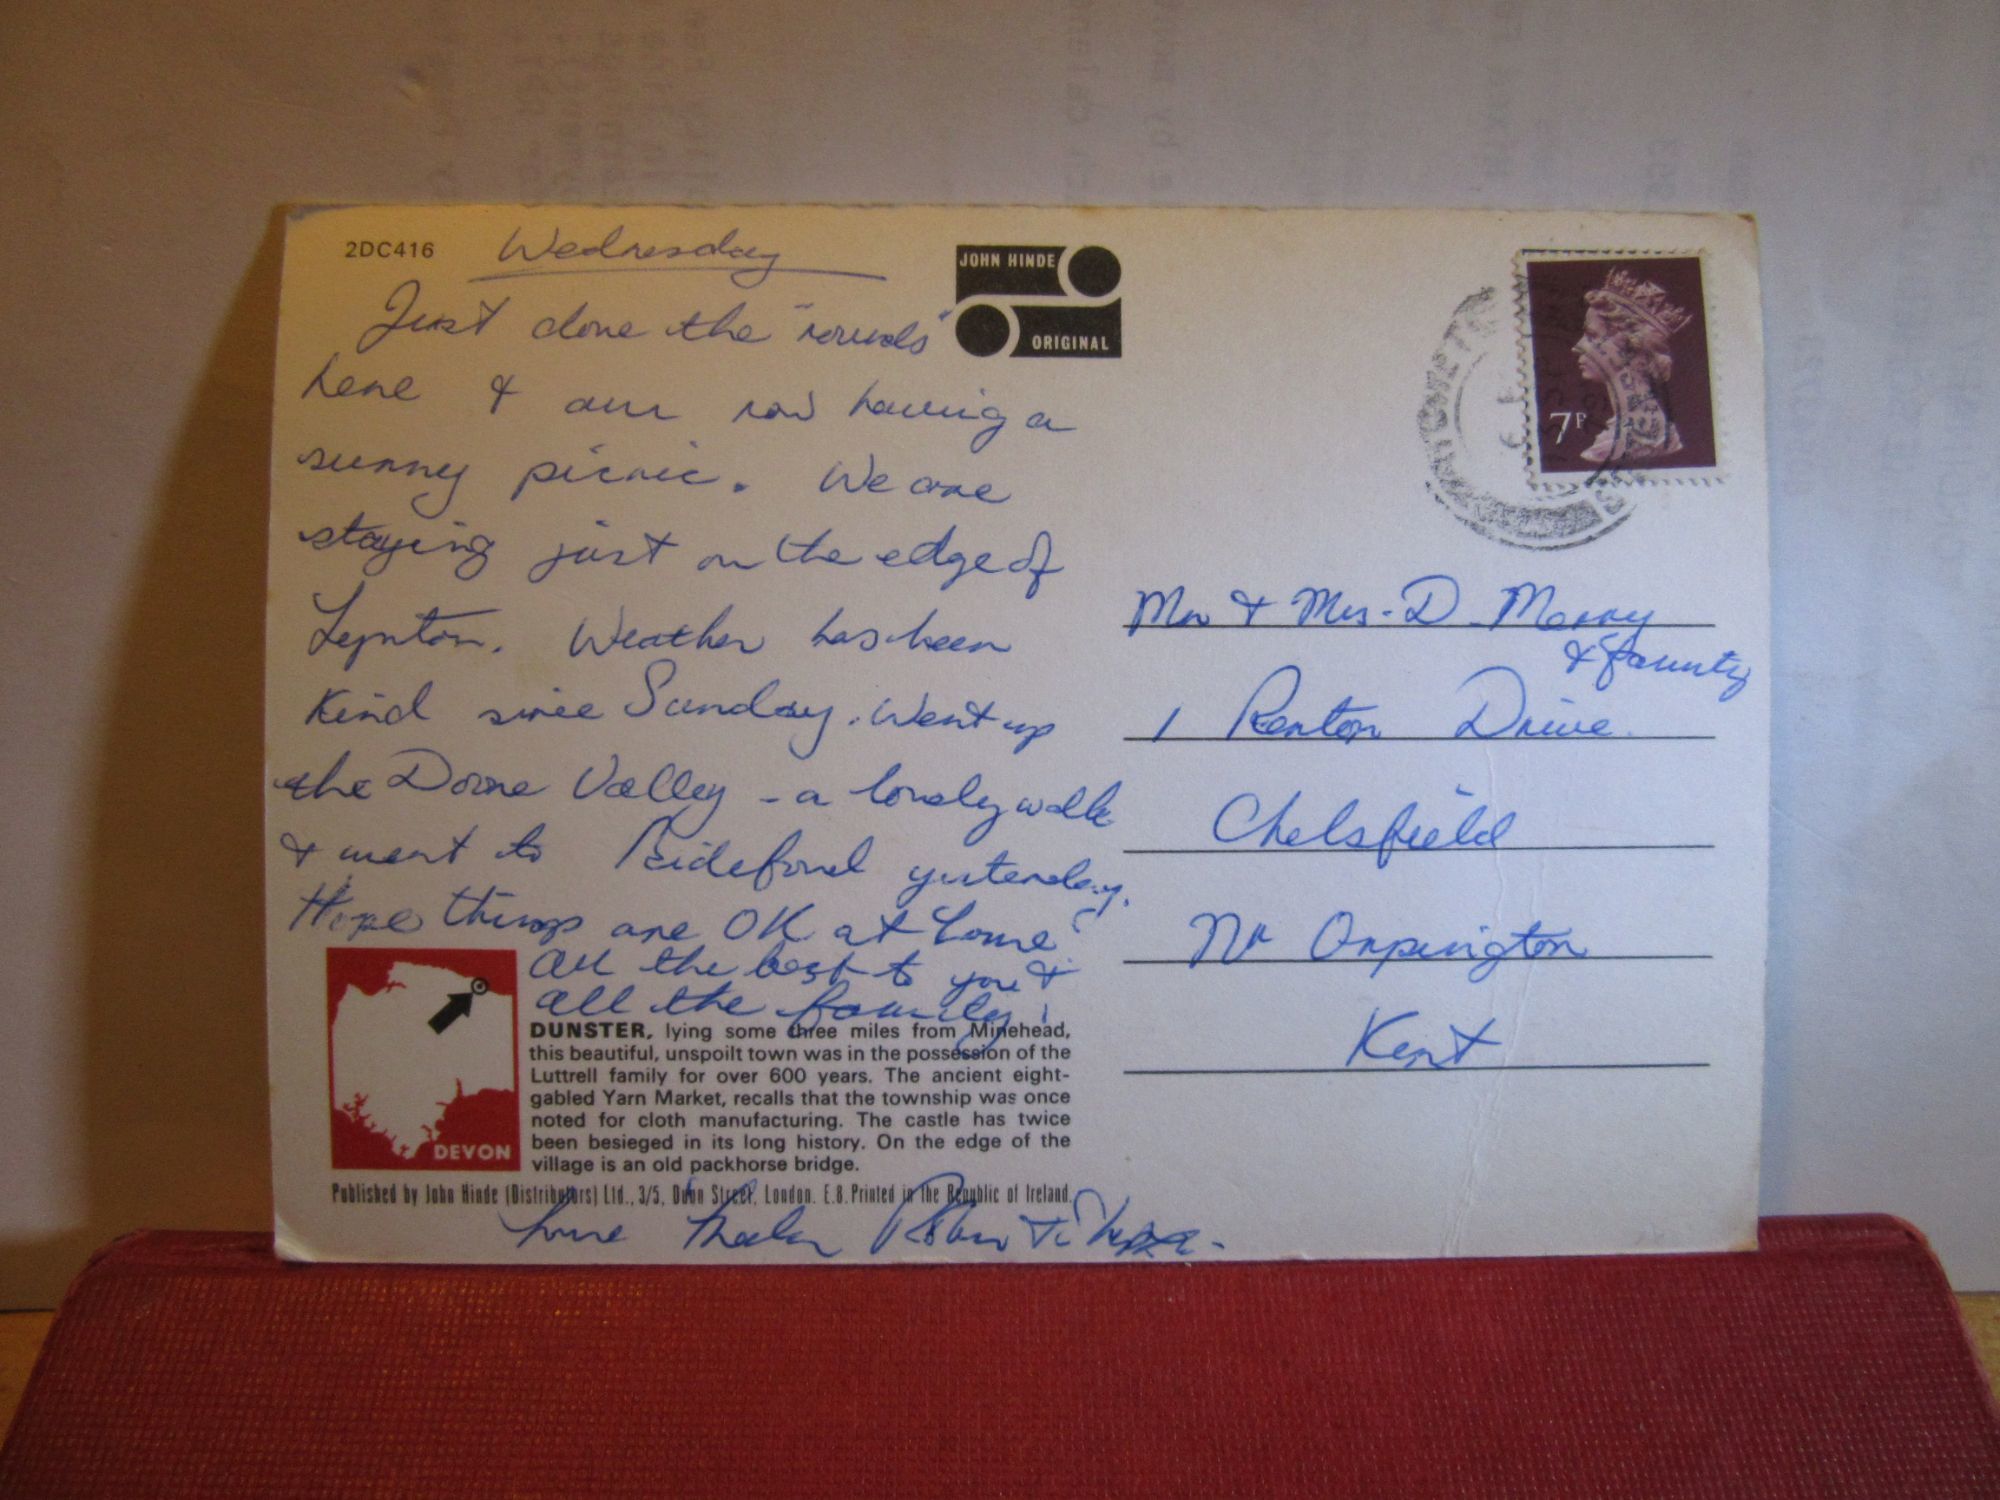 2DC416
Wednesday
JOHN HINDE
ORIGINAL
7P
Just done the "rounds"
here & are now having a
sunny picnic. We are
staying just on the edge of
Lynton. Weather has been
kind since Sunday. Went up
the Doone Valley - a lovely walk
& went to Bideford yesterday.
Hope things are OK at home
all the best to you &
all the family!
DUNSTER, lying some three miles from Minehead,
this beautiful, unspoilt town was in the possession of the
Luttrell family for over 600 years. The ancient eight-
gabled Yarn Market, recalls that the township was once
noted for cloth manufacturing. The castle has twice
been besieged in its long history. On the edge of the
village is an old packhorse bridge.
DEVON
Published by John Hinde (Distributors) Ltd., 3/5, Dunn Street, London. E.8. Printed in the Republic of Ireland.
Love
Mr & Mrs - D. Merry
& family
1 Renton Drive.
Chelsfield
Nr Orpington
Kent